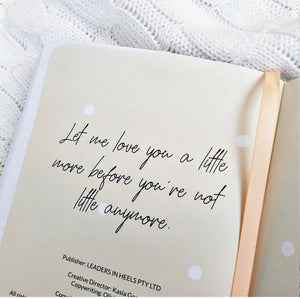 Let me love you a little
more before you're not
little anymore.
Publisher: LEADERS IN HEELS PTY LTD
Creative Director: Kasia
Copywriting:
All